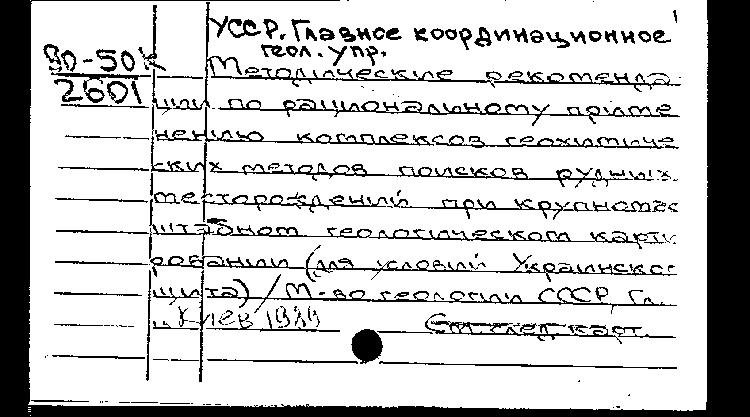 1
УССР. Главное координационное
геол. упр.
90-50К
2601
Методические рекоменда
ции по рациональному приме
нению комплексов геохимиче
ских методов поисков рудных
месторождений при крупномас
штабном геологическом карти
ровании (для условий Украинског
щита) / М-во геологии СССР, Гл.
Киев 1989 См. след. карт.